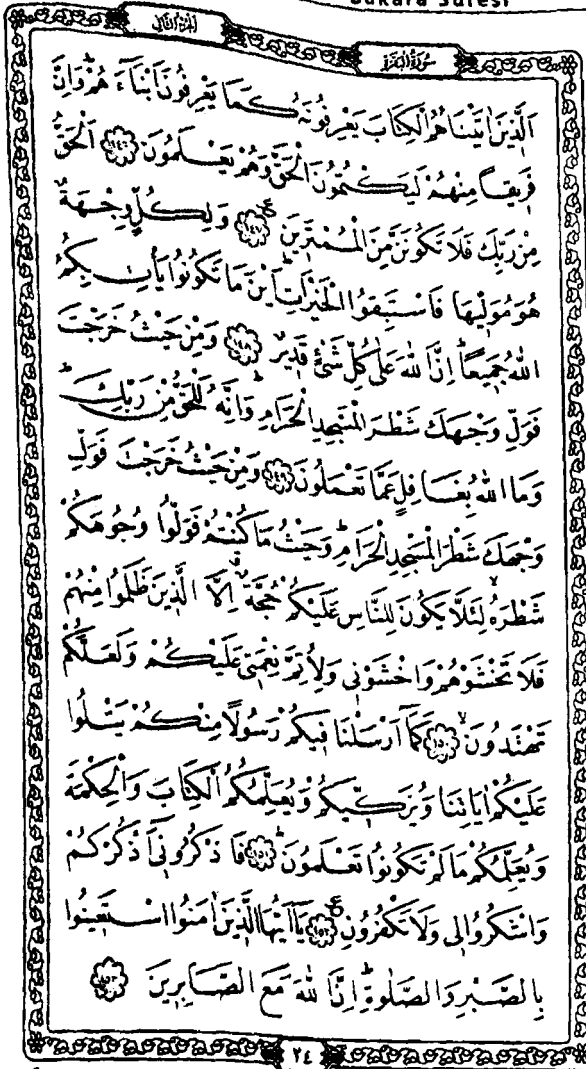 Bakara Suresi
الجزء الثاني
سورة البقرة
اَلَّذٖينَ اٰتَيْنَاهُمُ الْكِتَابَ يَعْرِفُونَهُ كَمَا يَعْرِفُونَ اَبْنَاءَهُمْ وَاِنَّ
فَرٖيقاً مِنْهُمْ لَيَكْتُمُونَ الْحَقَّ وَهُمْ يَعْلَمُونَ ﴿١٤٦﴾ اَلْحَقُّ
مِنْ رَبِّكَ فَلَا تَكُونَنَّ مِنَ الْمُمْتَرٖينَ ﴿١٤٧﴾ وَلِكُلٍّ وِجْهَةٌ
هُوَ مُوَلّٖيهَا فَاسْتَبِقُوا الْخَيْرَاتِ اَيْنَ مَا تَكُونُوا يَاْتِ بِكُمُ
اللّٰهُ جَمٖيعاً اِنَّ اللّٰهَ عَلٰى كُلِّ شَیْءٍ قَدٖيرٌ ﴿١٤٨﴾ وَمِنْ حَيْثُ خَرَجْتَ
فَوَلِّ وَجْهَكَ شَطْرَ الْمَسْجِدِ الْحَرَامِ وَاِنَّهُ لَلْحَقُّ مِنْ رَبِّكَ
وَمَا اللّٰهُ بِغَافِلٍ عَمَّا تَعْمَلُونَ ﴿١٤٩﴾ وَمِنْ حَيْثُ خَرَجْتَ فَوَلِّ
وَجْهَكَ شَطْرَ الْمَسْجِدِ الْحَرَامِ وَحَيْثُ مَا كُنْتُمْ فَوَلُّوا وُجُوهَكُمْ
شَطْرَهُ لِئَلَّا يَكُونَ لِلنَّاسِ عَلَيْكُمْ حُجَّةٌ اِلَّا الَّذٖينَ ظَلَمُوا مِنْهُمْ
فَلَا تَخْشَوْهُمْ وَاخْشَوْنٖى وَلِاُتِمَّ نِعْمَتٖى عَلَيْكُمْ وَلَعَلَّكُمْ
تَهْتَدُونَ ﴿١٥٠﴾ كَمَا اَرْسَلْنَا فٖيكُمْ رَسُولاً مِنْكُمْ يَتْلُوا
عَلَيْكُمْ اٰيَاتِنَا وَيُزَكّٖيكُمْ وَيُعَلِّمُكُمُ الْكِتَابَ وَالْحِكْمَةَ
وَيُعَلِّمُكُمْ مَا لَمْ تَكُونُوا تَعْلَمُونَ ﴿١٥١﴾ فَاذْكُرُونٖى اَذْكُرْكُمْ
وَاشْكُرُوا لٖى وَلَا تَكْفُرُونِ ﴿١٥٢﴾ يَا اَيُّهَا الَّذٖينَ اٰمَنُوا اسْتَعٖينُوا
بِالصَّبْرِ وَالصَّلٰوةِ اِنَّ اللّٰهَ مَعَ الصَّابِرٖينَ ﴿١٥٣﴾
٢٤